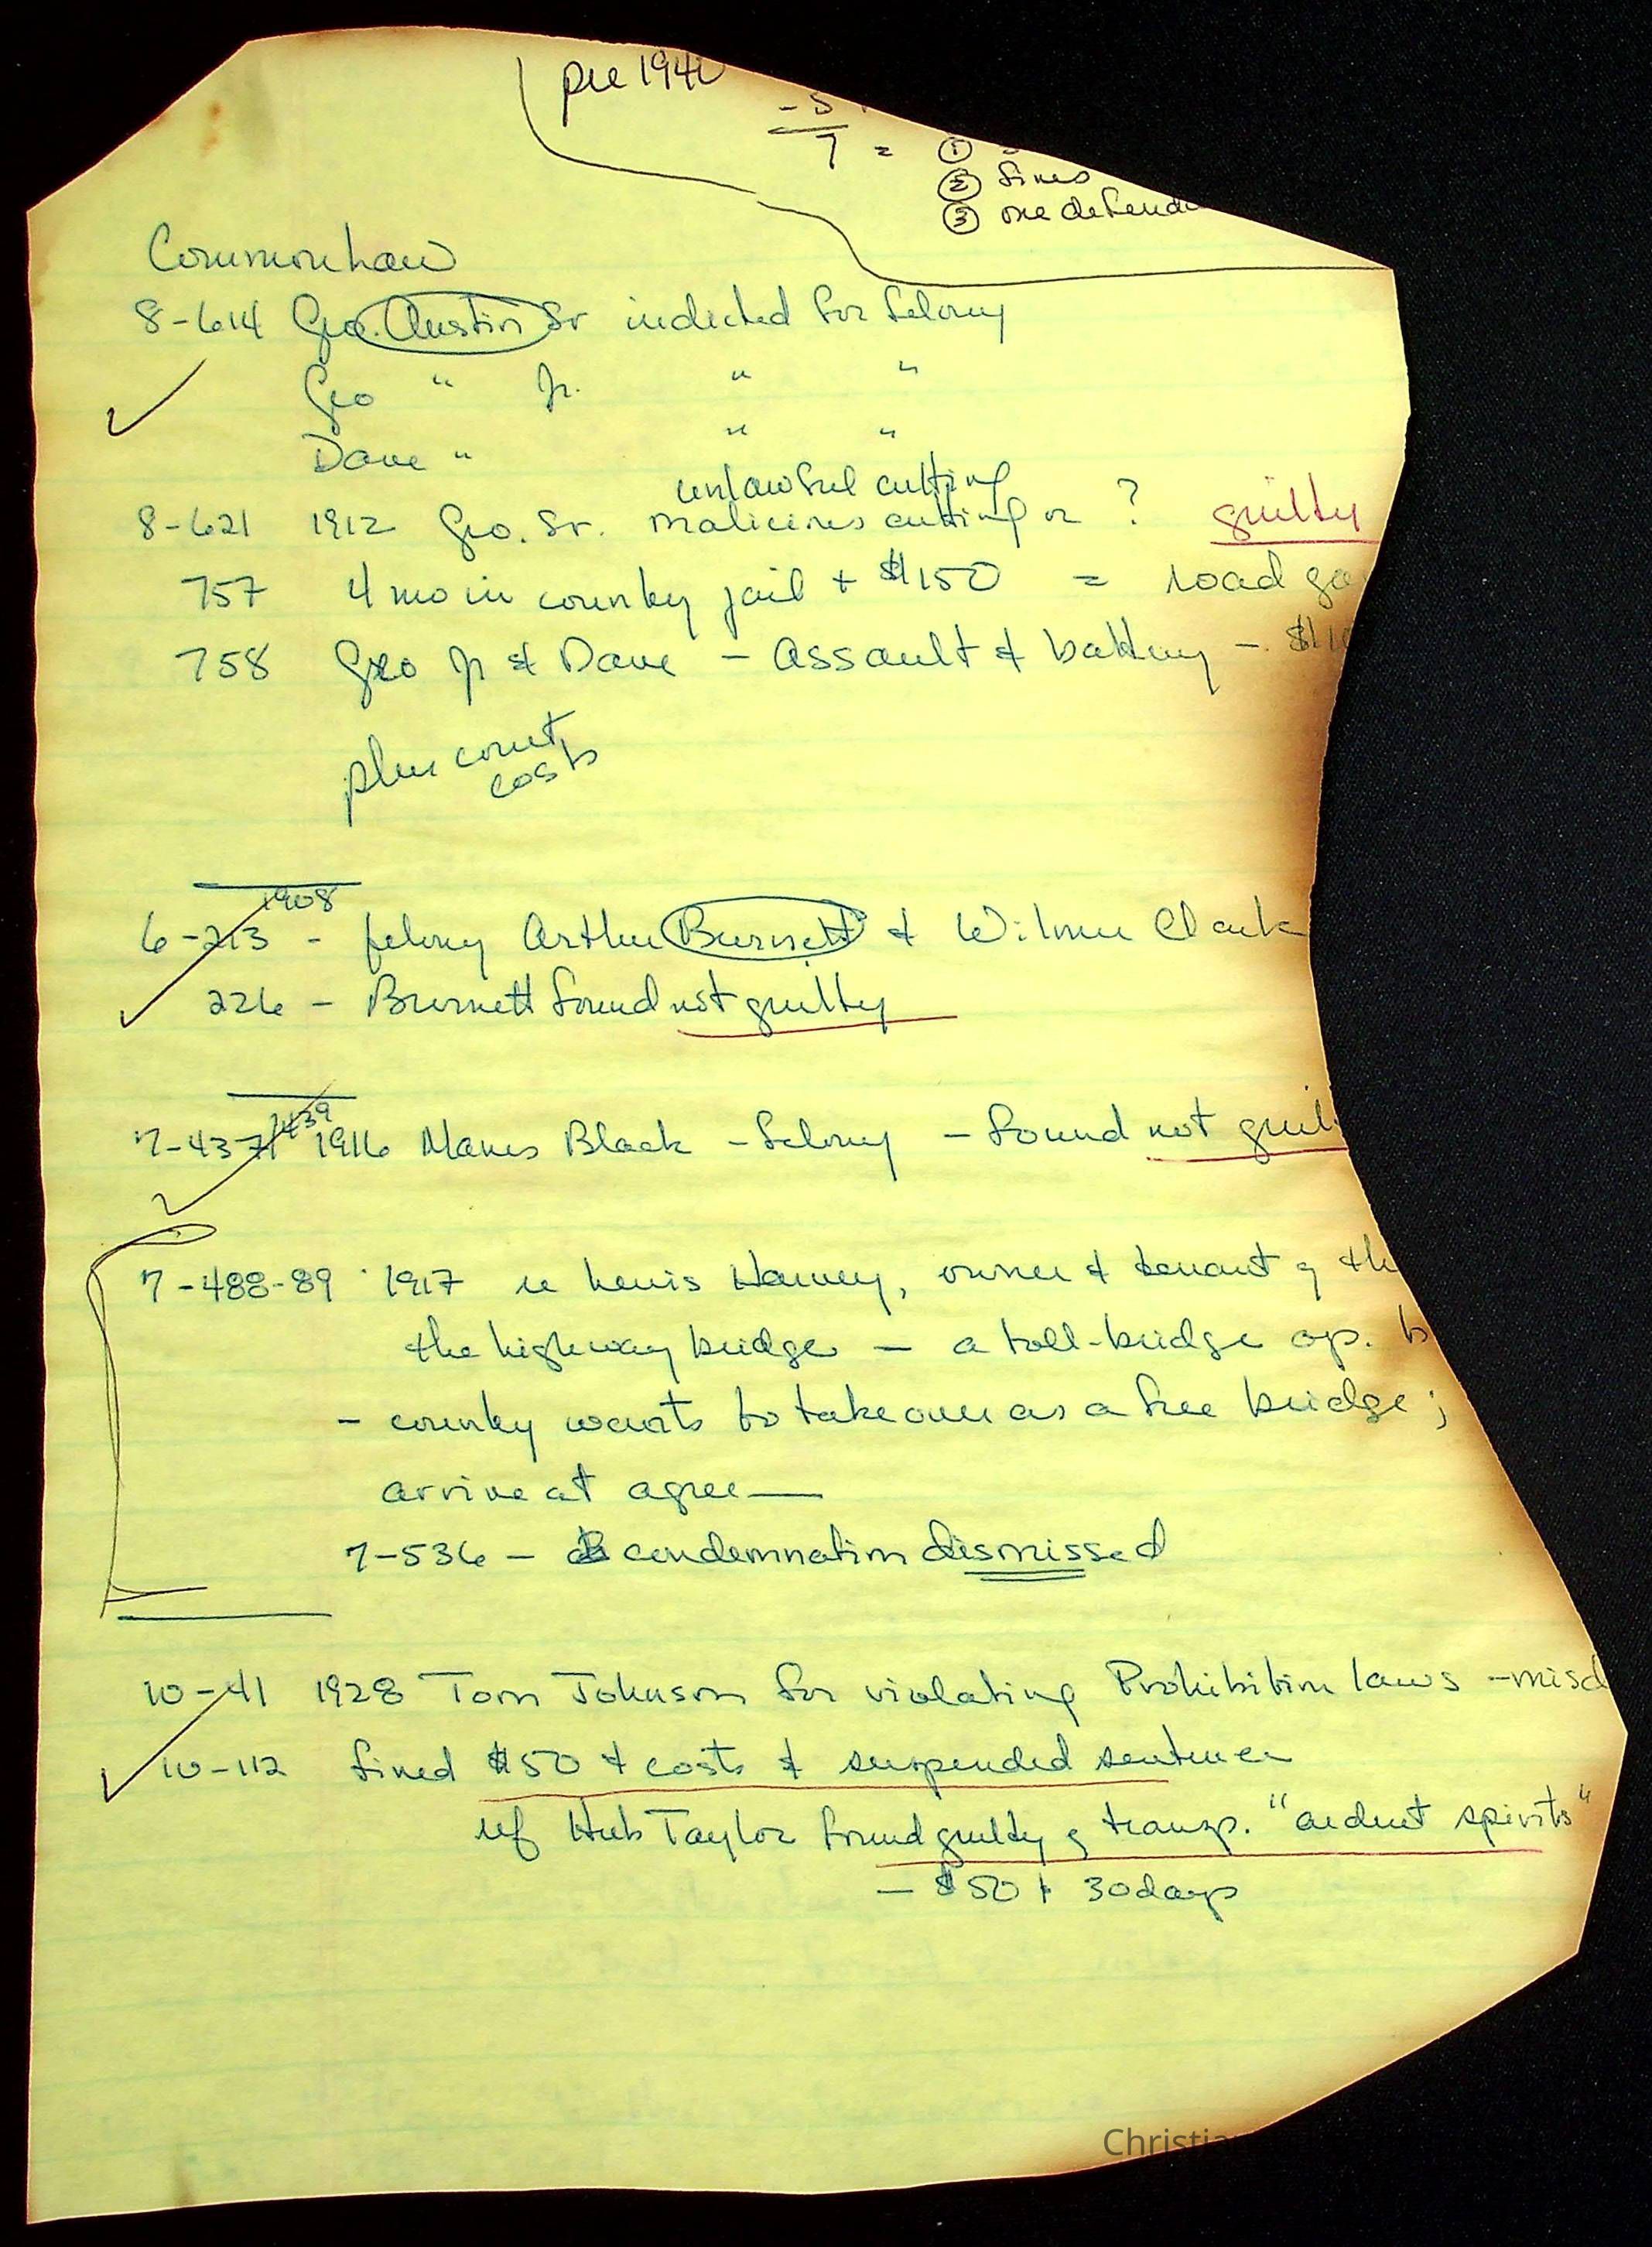 pre 194
- 5
7 = ①
② fines
③ one defend
Common Law
8-614 Geo. Austin Sr indicted for felony
Geo " Jr. " "
Dave " " "
unlawful cutting
8-621 1912 Geo. Sr. malicious cutting or ? guilty
757 4 mo in county jail + $150 = road ga
758 Geo Jr & Dave - assault & battery - $10
plus court
costs
1908
6-213 - felony Arthur Burnett & Wilmer Clark
226 - Burnett found not guilty
439
7-437 1916 Manes Black - felony - found not guil
7-488-89 1917 re Lewis Harvey, owner & tenant of th
the highway bridge - a toll-bridge op. b
- county wants to take over as a free bridge;
arrive at agree—
7-536 - condemnation dismissed
10-41 1928 Tom Johnson for violating Prohibition laws - misd
10-112 fined $50 & costs & suspended sentence
Hub Taylor found guilty of transp. "ardent spirits"
- $50 + 30 days
Christia